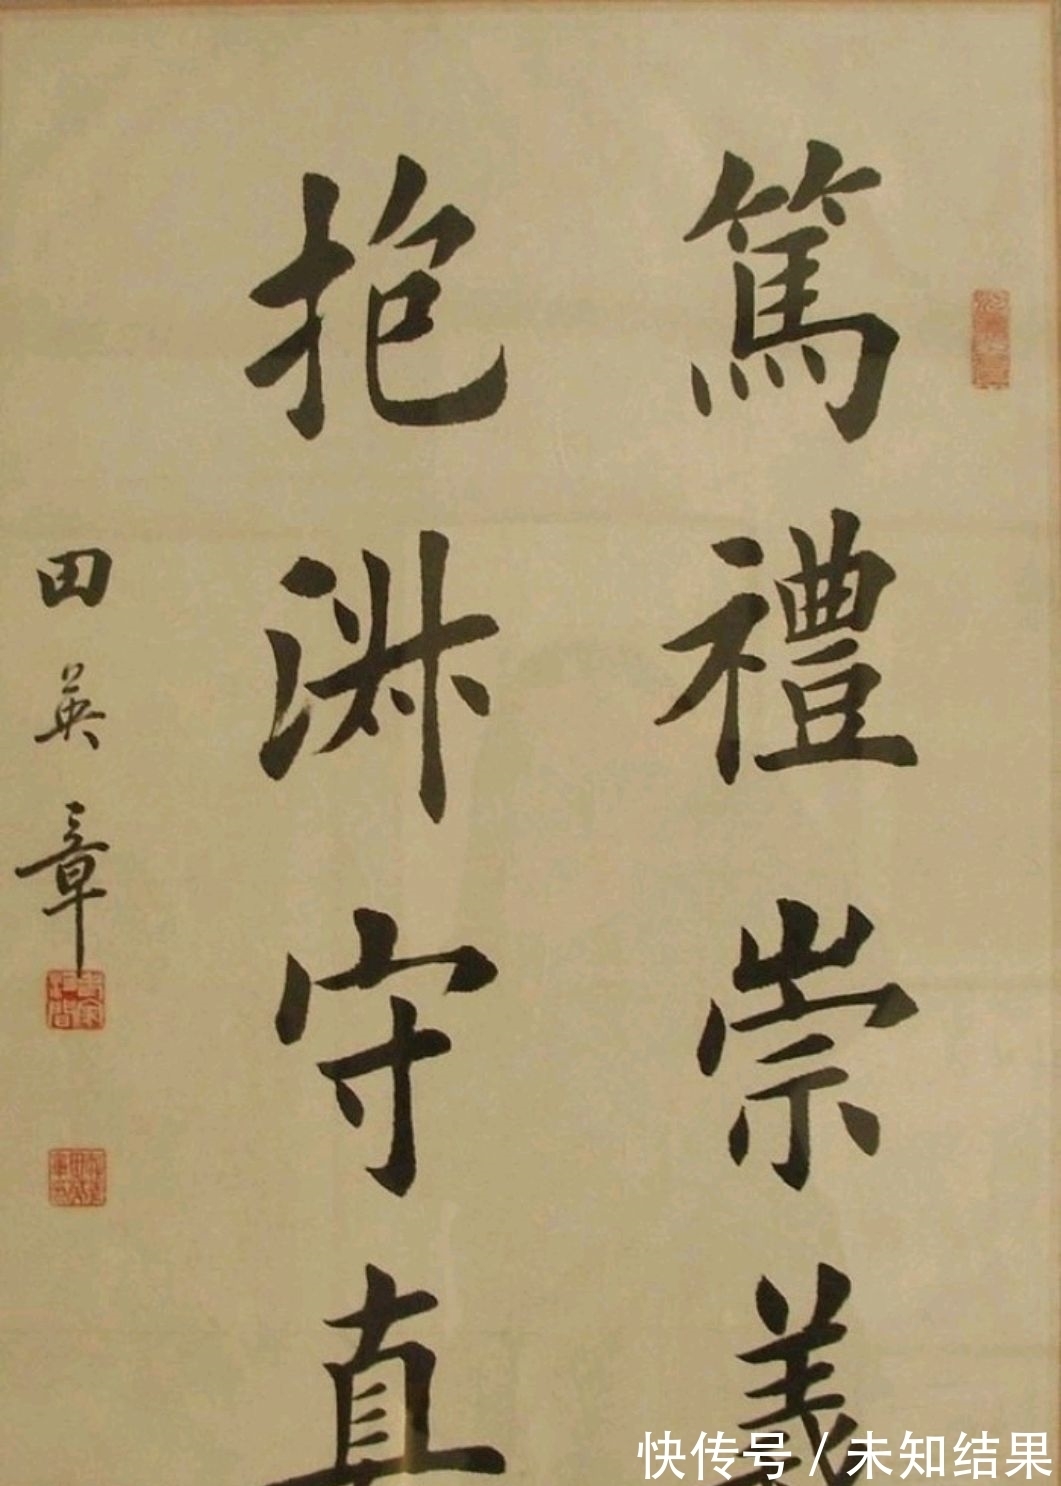 篤禮崇義
抱淑守真
田英章
快传号 / 未知结果